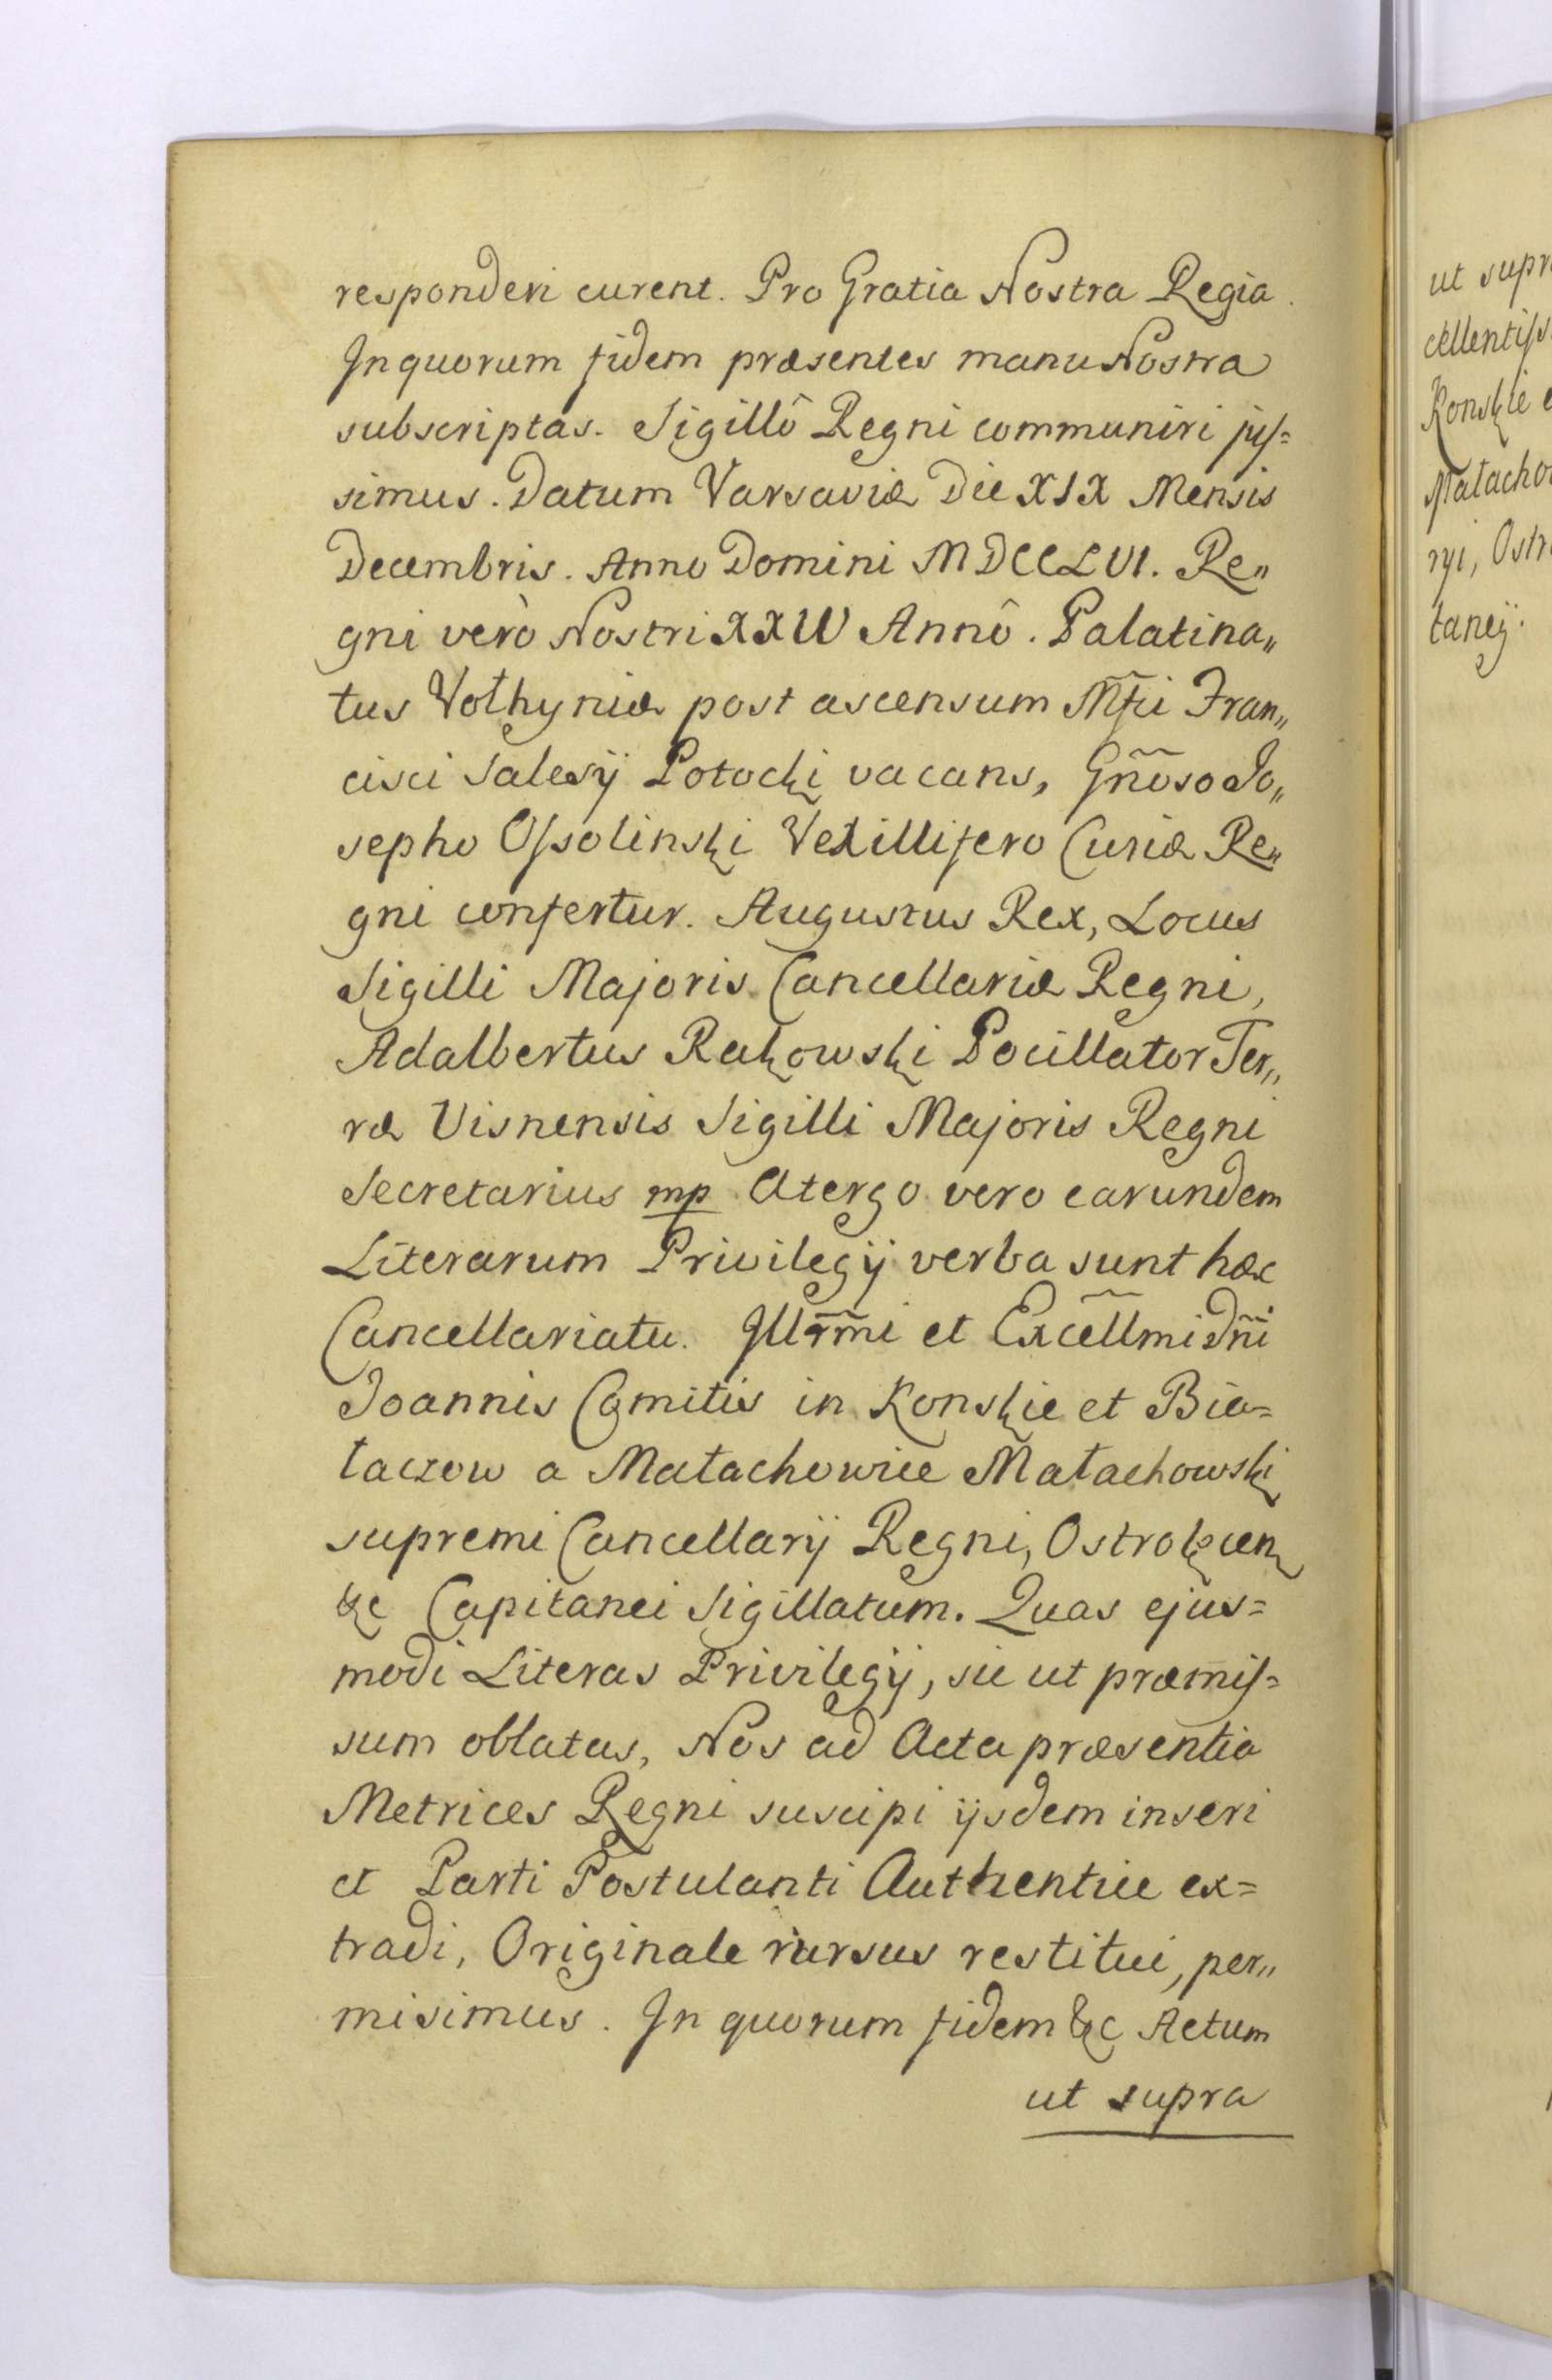 responderi curent. Pro Gratia Nostra Regia.
In quorum fidem præsentes manu Nostra
subscriptas. Sigillô Regni communiri jus=
simus. Datum Varsaviæ Die XIX Mensis
Decembris. Anno Domini MDCCLVI. Re„
gni verò Nostri XXIV Annô. Palatina„
tus Wołhyniæ post ascensum Mf̃ci Fran„
cisci Salesÿ Potocki vacans, Gñoso Jo„
sepho Ossolinski Vexillifero Curiæ Re„
gni confertur. Augustus Rex, Locus
Sigilli Majoris Cancellariæ Regni,
Adalbertus Rakowski Pocillator Ter„
ræ Visnensis Sigilli Majoris Regni
Secretarius mp Atergo vero earundem
Literarum Privilegÿ verba sunt hæc
Cancellariatu. Illr̃mi et Excẽllmi Dñi
Joannis Comitis in Konskie et Bia=
łaczow a Małachowice Małachowski
supremi Cancellarÿ Regni, Ostrołęcen
&c Capitanei Sigillatum. Quas ejus=
modi Literas Privilegÿ, sic ut præmis=
sum oblatas, Nos ad Acta præsentia
Metrices Regni suscipi ijsdem inseri
et Parti Postulanti Authentice ex=
tradi, Originale rursus restitui, per„
misimus. In quorum fidem &c Actum
ut supra
ut supr
cellentiss
Konskie e
Małacho
ryi, Ostr
taneÿ.